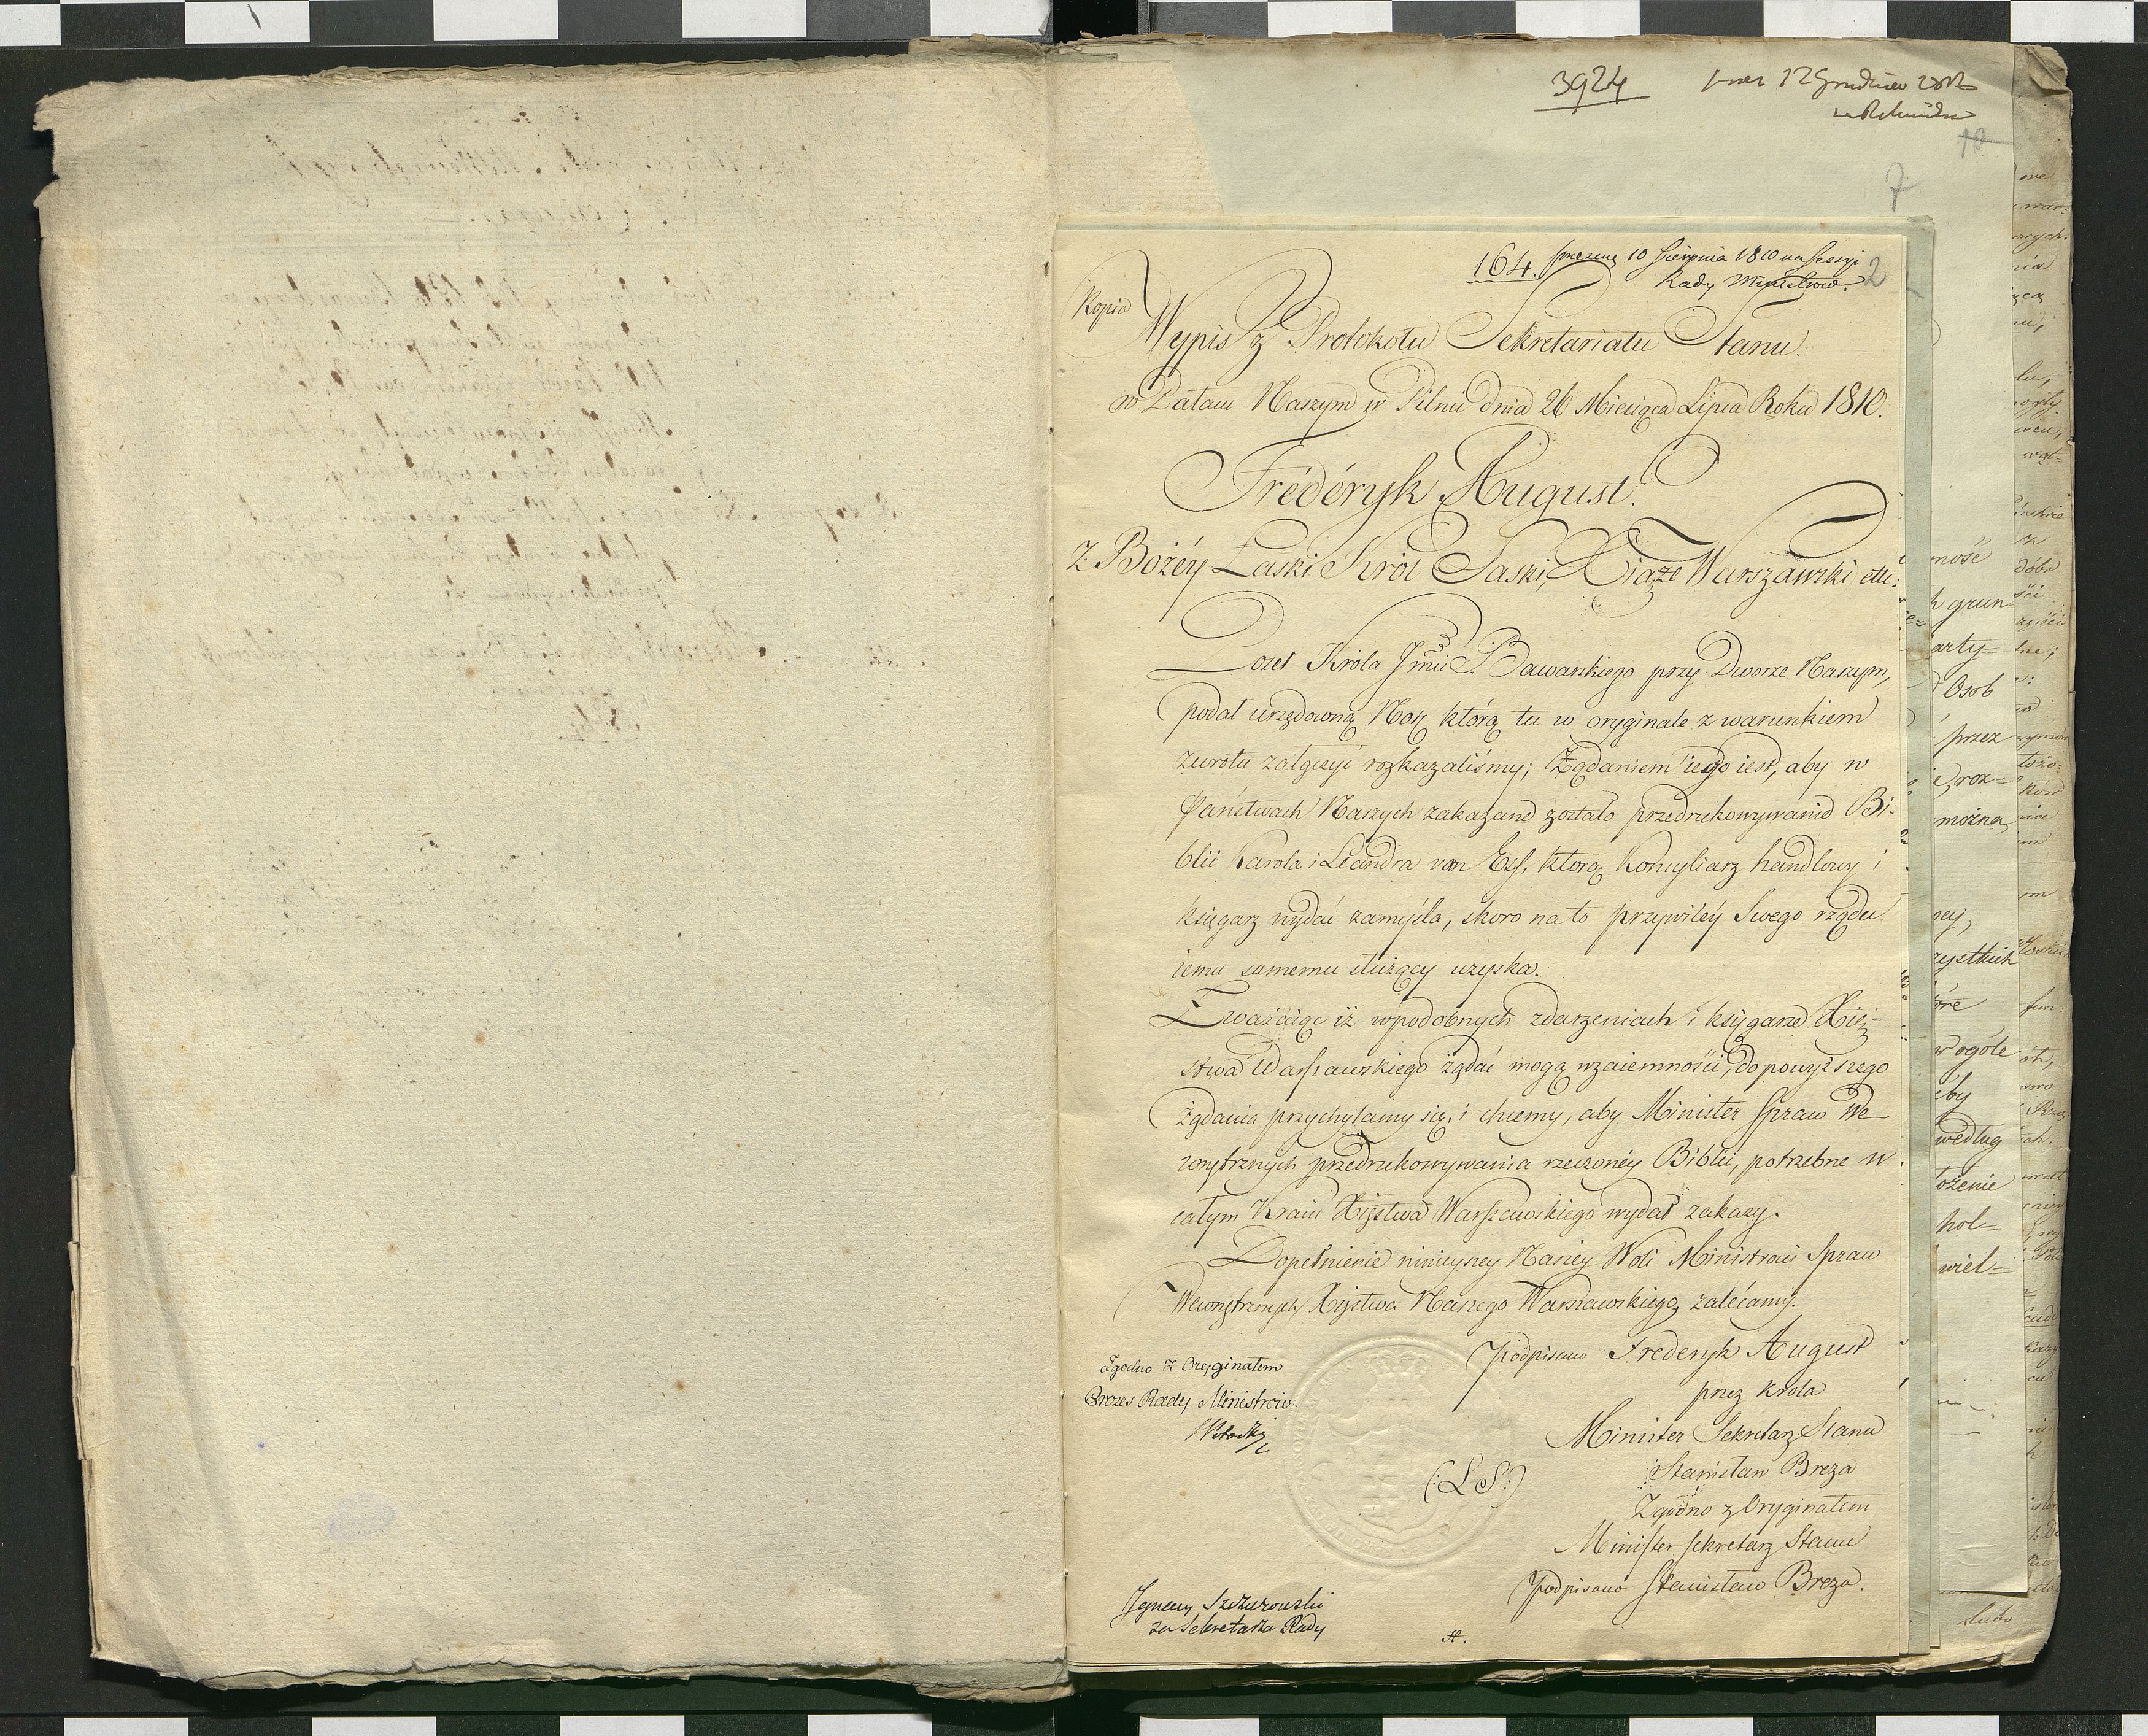 3924
12 Grudnia
10
7
164. 10 Sierpnia 1810 na Sessyi
Rady Ministrów. 2
Kopia
Wypis z Protokołu Sekretariatu Stanu.
w Pałacu Naszym w Pilnitz dnia 26 Miesiąca Lipca Roku 1810.
Fréderyk August.
z Bożéy Łaski Król Saski, Xiąże Warszawski ettc:
Poseł Króla Jmci Bawarskiego przy Dworze Naszym,
podał urzędowną Notę którą tu w oryginale z warunkiem
zwrotu załączyć rozkazaliśmy; Żądaniem iego iest, aby w
Państwach Naszych zakazane zostało przedrukowywanie Bi-
blii Karola i Leandra van Ess, którą Konsyliarz handlowy i
księgarz wydać zamyśla, skoro na to przywiléy Swego rządu
iemu samemu służący uzyska.
Zważaiąc iż w podobnych zdarzeniach i księgarze Xię-
stwa Warszawskiego żądać mogą wzaiemności, do powyższego
żądania przychylamy się, i chcemy, aby Minister Spraw We-
wnętrznych przedrukowywania rzeczonéy Biblii, potrzebne w
całym Kraiu Xięstwa Warszawskiego wydał zakazy.
Dopełnienie ninieyszey Naszéy Woli Ministrowi Spraw
Wewnętrznych Xięstwa Naszego Warszawskiego zalécamy.
Podpisano Frederyk August
przez Króla
Minister Sekretarz Stanu
Stanisław Breza
(: L S :)
Zgodno z Oryginałem
Minister Sekretarz Stanu
Podpisano Stanisław Breza.
Zgodno z Oryginałem
Prezes Rady Ministrów
Ignacy Szczurowski
za Sekretarza Rady
mość
grun=
arty=
Osob
przez
roz=
można,
zystkich
w ogóle
według
wiel=